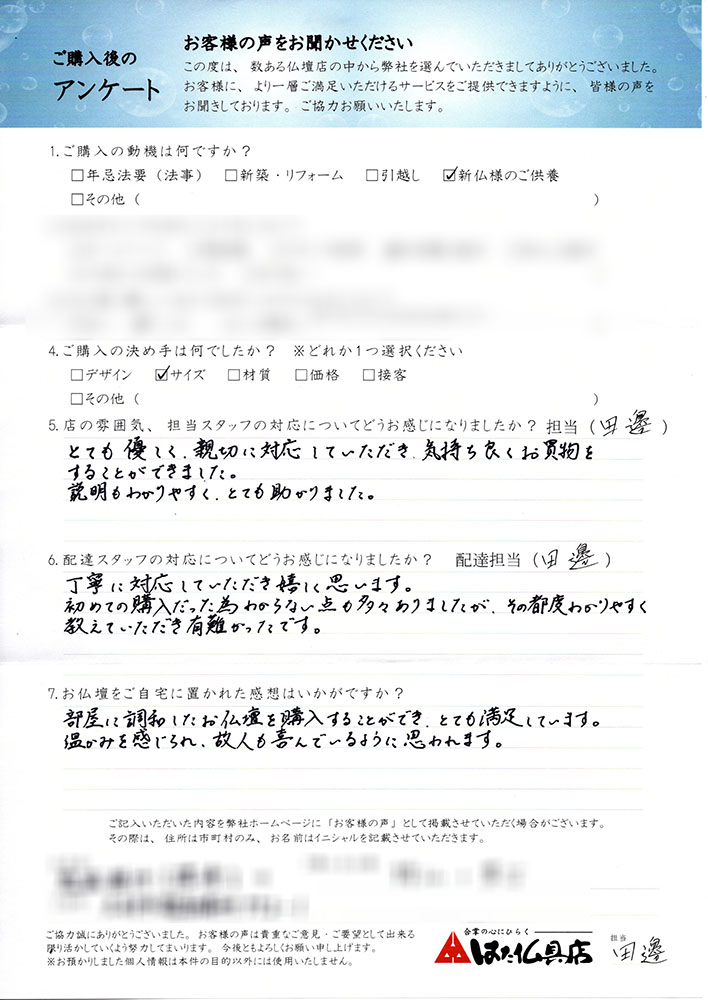 ご購入後の
アンケート
お客様の声をお聞かせください
この度は、数ある仏壇店の中から弊社を選んでいただきましてありがとうございました。
お客様に、より一層ご満足いただけるサービスをご提供できますように、皆様の声を
お聞きしております。ご協力お願いいたします。
1.ご購入の動機は何ですか?
□年忌法要(法事) □新築・リフォーム □引越し ☑新仏様のご供養
□その他( )
4.ご購入の決め手は何でしたか? ※どれか1つ選択ください
□デザイン ☑サイズ □材質 □価格 □接客
□その他( )
5.店の雰囲気、担当スタッフの対応についてどうお感じになりましたか? 担当(田邊)
とても優しく、親切に対応していただき、気持ち良くお買物を
することができました。
説明もわかりやすく、とても助かりました。
6.配達スタッフの対応についてどうお感じになりましたか? 配達担当(田邊)
丁寧に対応していただき嬉しく思います。
初めての購入だった為わからない点も多々ありましたが、その都度わかりやすく
教えていただき有難かったです。
7.お仏壇をご自宅に置かれた感想はいかがですか?
部屋に調和したお仏壇を購入することができ、とても満足しています。
温かみを感じられ、故人も喜んでいるように思われます。
ご記入いただいた内容を弊社ホームページに「お客様の声」として掲載させていただく場合がございます。
その際は、住所は市町村のみ、お名前はイニシャルを記載させていただきます。
ご協力誠にありがとうございました。お客様の声は貴重なご意見・ご要望として出来る
限り活かしていくよう努力してまいります。今後ともよろしくお願い申し上げます。
※お預かりしました個人情報は本件の目的以外には使用いたしません。
合掌の心にひらく
はた仏具店
担当
田邊